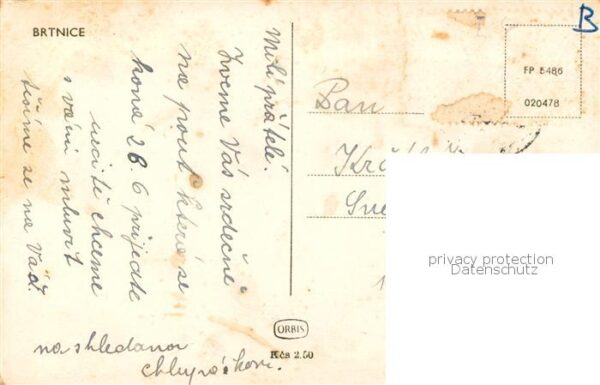 BRTNICE
Milí přátelé.
Zveme Vás srdečně
na pout které se
koná 26. 6 přijedte
určitě chceme
s vámi mluvit
těšíme se na Vás.
na shledanou
B
FP 5486
020478
Pan
ORBIS
Kčs 2.50
privacy protection
Datenschutz